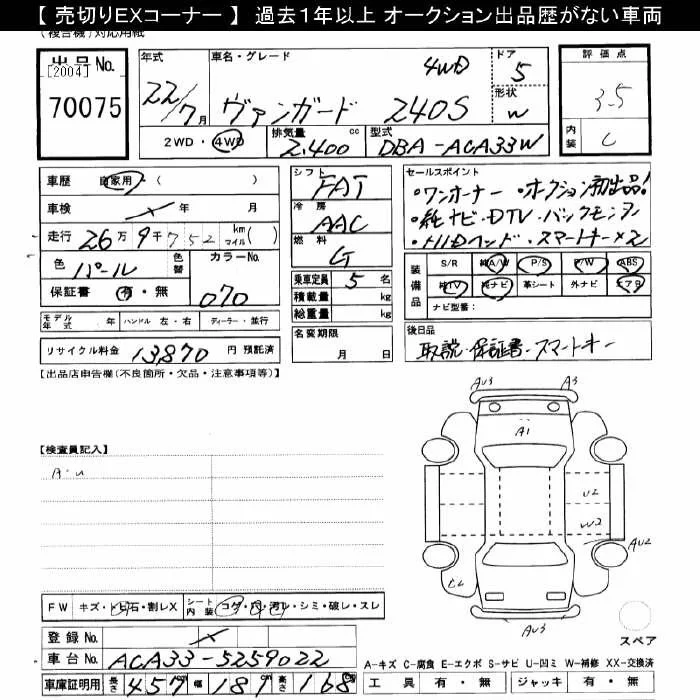 【 売切りEXコーナー 】 過去1年以上 オークション出品歴がない車両
(複合機)対応用紙
出品No.
[2004]
70075
年式 車名・グレード ドア 評価点
22/7月 ヴァンガード 240S 4WD 5
形状 W
3.5
内装 C
2WD・4WD 排気量 2,400 cc 型式 DBA-ACA33W
車歴 自家用・( )
車検 年 月
走行 26万9千752 km マイル( )
色 パール 色替 カラーNo. 070
保証書 有・無
モデル年式 年 ハンドル 左・右 ディーラー・並行
リサイクル料金 13,870 円 預託済
シフト FAT
冷房 AAC
燃料 G
乗車定員 5 名
積載量 kg
総重量 kg
名変期限
月 日
セールスポイント
・ワンオーナー ・オークション初出品!
・純ナビ・DTV・バックモニタ
・HIDヘッド・スマートキー×2
装備品 S/R 純A/W P/S P/W ABS
純TV 純ナビ 革シート 外ナビ エアB
ナビ型番:
後日品
取説・保証書・スマートキー
【出品店申告欄(不良箇所・欠品・注意事項等)】
【検査員記入】
A・U
AU3 A3
A1
U2
W2
AU2
AU3
FW キズ・トビ石・割レX シート内装 コゲ・穴・汚レ・シミ・破レ・スレ
登録No.
車台No. ACA33-5259022
車庫証明用 長さ 457 幅 187 高さ 168
スペア
A-キズ C-腐食 E-エクボ S-サビ U-凹ミ W-補修 XX-交換済
工具 有・無 ジャッキ 有・無